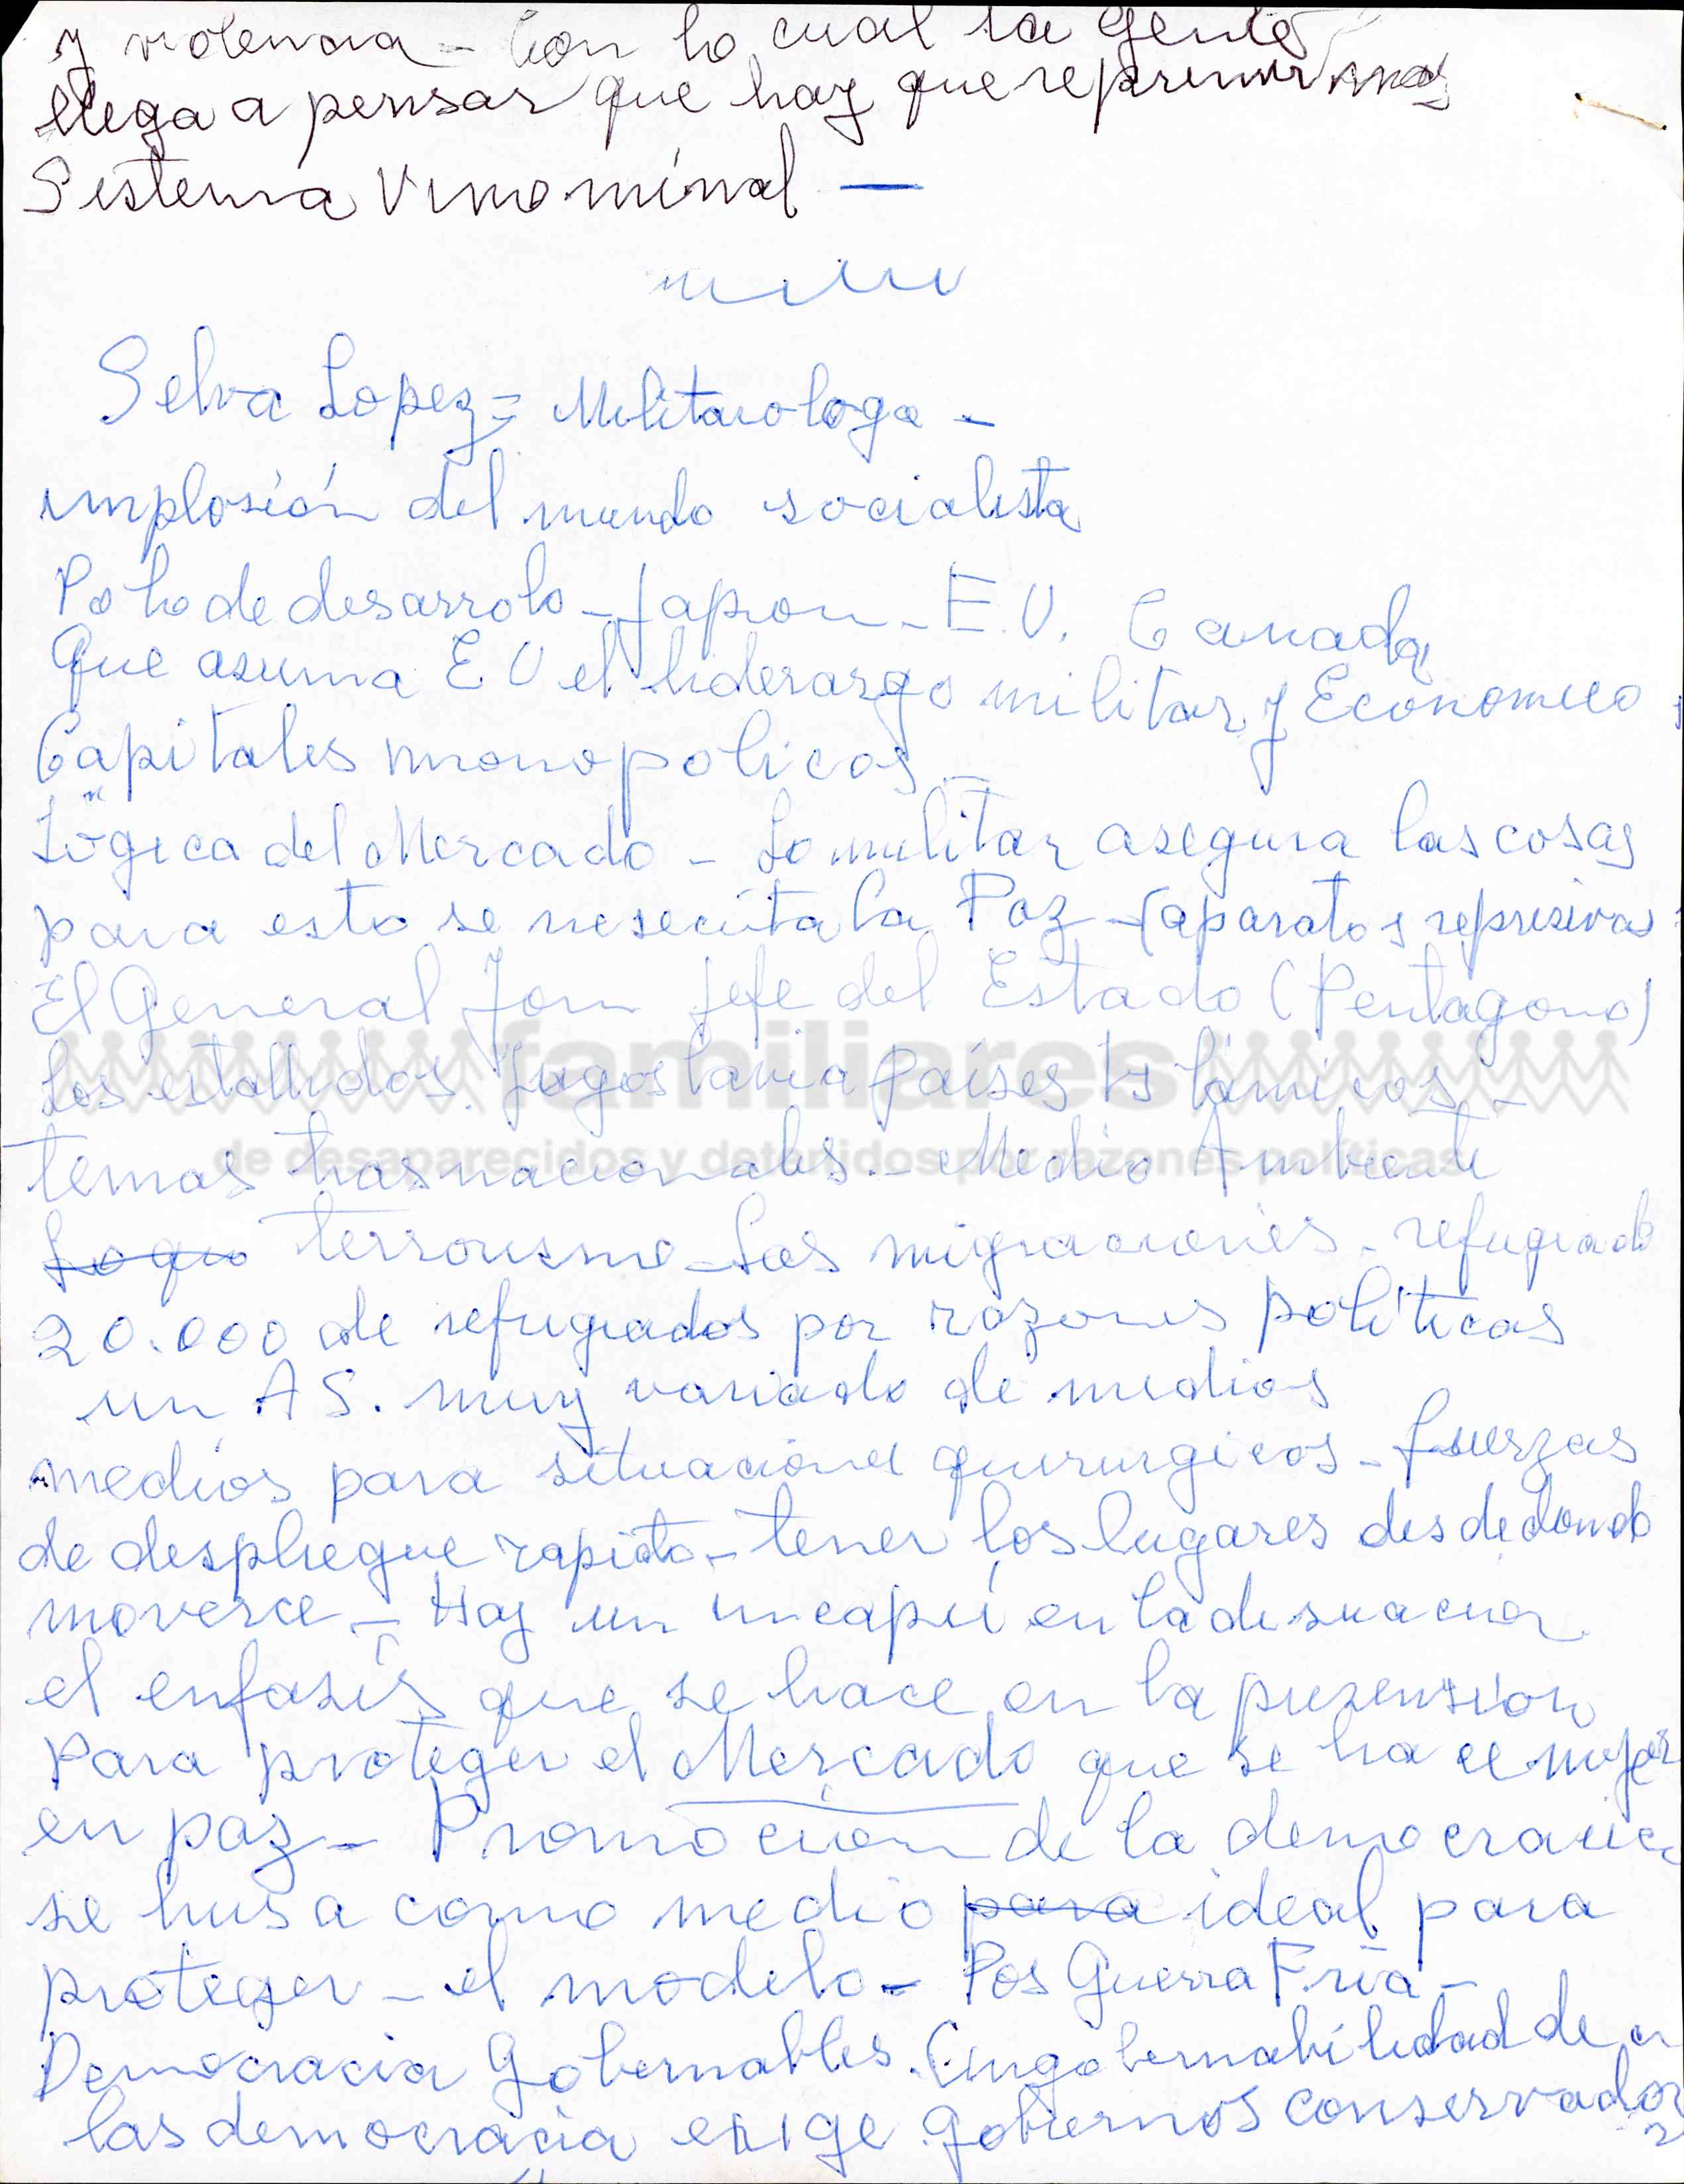 y violencia - Con lo cual la gente
llega a pensar que hay que reprimir mas
Sistema Vinominal —
Selva Lopez = Militarologa -
implosión del mundo socialista
Polo de desarrolo - Japon - E.U. Canada
Que asuma E U el liderazgo militar y Economico
Capitales monopolicos -
Lógica del Mercado - Lo militar asegura las cosas
para esto se nesecita la Paz - (aparatos represivos
El General Jon jefe del Estado (Pentagono)
los estallidos. Jugoslavia Países Islámicos -
familiares
temas trasnacionales. - Medio Ambiente
de desaparecidos y detenidos por razones políticas
terrorismo - Las migraciones - refugiado
20.000 de refugiados por razones políticas
un A S. muy variado de medios
medios para situaciones quirurgicos - fuerzas
de despliegue rapido - tener los lugares desde donde
moverce - Hay un incapié en la
el enfasis que se hace en la
Para proteger el Mercado que se hace mejor
en paz - Promocion de la democracia
se husa como medio para ideal para
proteger - el modelo - Pos Guerra Fría -
Democracia Gobernables. (Ingobernabilidad de
las democracia exige gobiernos conservador